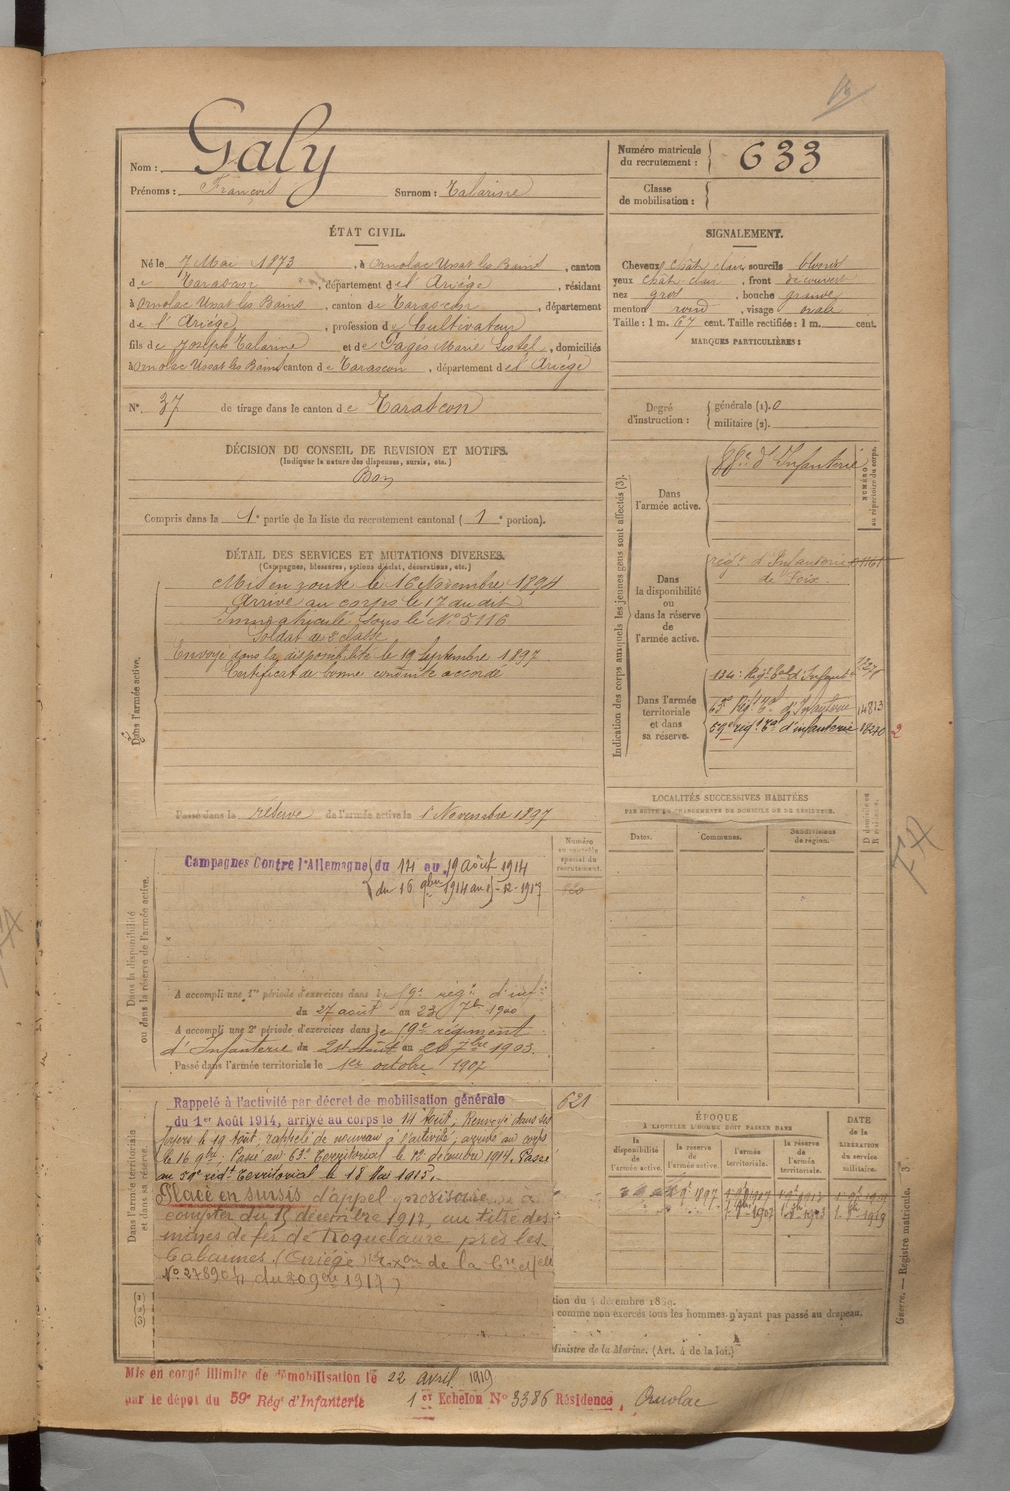 Galy
Nom :
Prénoms : François Surnom : Talarine
Numéro matricule du recrutement : 633
Classe de mobilisation :
ÉTAT CIVIL.
Né le 7 Mai 1873, à Ornolac Ussat les Bains, canton
de Tarascon, département de l'Ariège, résidant
à Ornolac Ussat les Bains, canton de Tarascon, département
de l'Ariège, profession de Cultivateur
fils de Joseph Talarine et de Pagés Marie, domiciliés
à Ornolac Ussat les Bains canton de Tarascon, département de l'Ariège
SIGNALEMENT.
Cheveux chât clair sourcils blonds
yeux chât clair, front découvert
nez gros, bouche grande
menton rond, visage ovale
Taille : 1 m. 67 cent. Taille rectifiée : 1 m. cent.
MARQUES PARTICULIÈRES :
N° 37 de tirage dans le canton de Tarascon
Degré d'instruction : générale (1). 0
militaire (2).
DÉCISION DU CONSEIL DE REVISION ET MOTIFS.
(Indiquer la nature des dispenses, sursis, etc.)
Bon
Compris dans la 1e partie de la liste du recrutement cantonal (1e portion).
DÉTAIL DES SERVICES ET MUTATIONS DIVERSES.
(Campagnes, blessures, actions d'éclat, décorations, etc.)
Dans l'armée active.
Mis en route le 16 Novembre 1894
Arrivé au corps le 17 du dit
Immatriculé sous le N° 5116
Soldat de 2e classe
Envoyé dans la disponibilité le 19 Septembre 1897
Certificat de bonne conduite accordé
Passé dans la réserve de l'armée active le 1 Novembre 1897
Indication des corps auxquels les jeunes gens sont affectés (3).
NUMÉRO au répertoire du corps.
Dans l'armée active.
d'Infanterie
Dans la disponibilité ou dans la réserve de l'armée active.
régt d'Infanterie
de Foix.
Dans l'armée territoriale et dans sa réserve.
134e Régt tal d'Infant
63e Régt Tal d'Infanterie 14813
59e régt Tal d'infanterie 18240
2
LOCALITÉS SUCCESSIVES HABITÉES
PAR SUITE DE CHANGEMENTS DE DOMICILE OU DE RÉSIDENCE.
Dates. Communes. Subdivisions de région. D domicile ou R résidence.
Numéro au contrôle spécial du recrutement.
Dans la disponibilité ou dans la réserve de l'armée active.
Campagnes Contre l'Allemagne du 14 au 19 Août 1914
du 16 9bre 1914 au 15-12-1917
A accompli une 1re période d'exercices dans le 59e régt d'inf
du 27 août au 23 7b 1900
A accompli une 2e période d'exercices dans le 59e régiment
d'Infanterie du 24 Août au 20 7bre 1903.
Passé dans l'armée territoriale le 1er octobre 1907
Dans l'armée territoriale et dans sa réserve.
621
Rappelé à l'activité par décret de mobilisation générale
du 1er Août 1914, arrivé au corps le 14 Août, Renvoyé dans ses
foyers le 19 Août, rappelé de nouveau à l'activité, arrivé au corps
le 16 9bre. Passé au 63e Territorial le 12 décembre 1914. Passé
au 59e régt Territorial le 18 Mai 1915.
Placé en sursis d'appel
compter du 15 décembre 1917, au titre des
mines de fer de Roquelaure près les
Cabannes (Ariège)
N° 27890 du 30 9bre 1917)
ÉPOQUE
À LAQUELLE L'HOMME DOIT PASSER DANS
la disponibilité de l'armée active.
la réserve de l'armée active.
l'armée territoriale.
la réserve de l'armée territoriale.
DATE de la LIBÉRATION du service militaire.
Guerre. — Registre matricule. 3.
tion du 4 décembre 1889.
comme non exercés tous les hommes n'ayant pas passé au drapeau.
Ministre de la Marine. (Art. 4 de la loi.)
Mis en congé illimité de démobilisation le 22 avril 1919
par le dépôt du 59e Régt d'Infanterie 1er Echelon N° 3386 Résidence, Ornolac